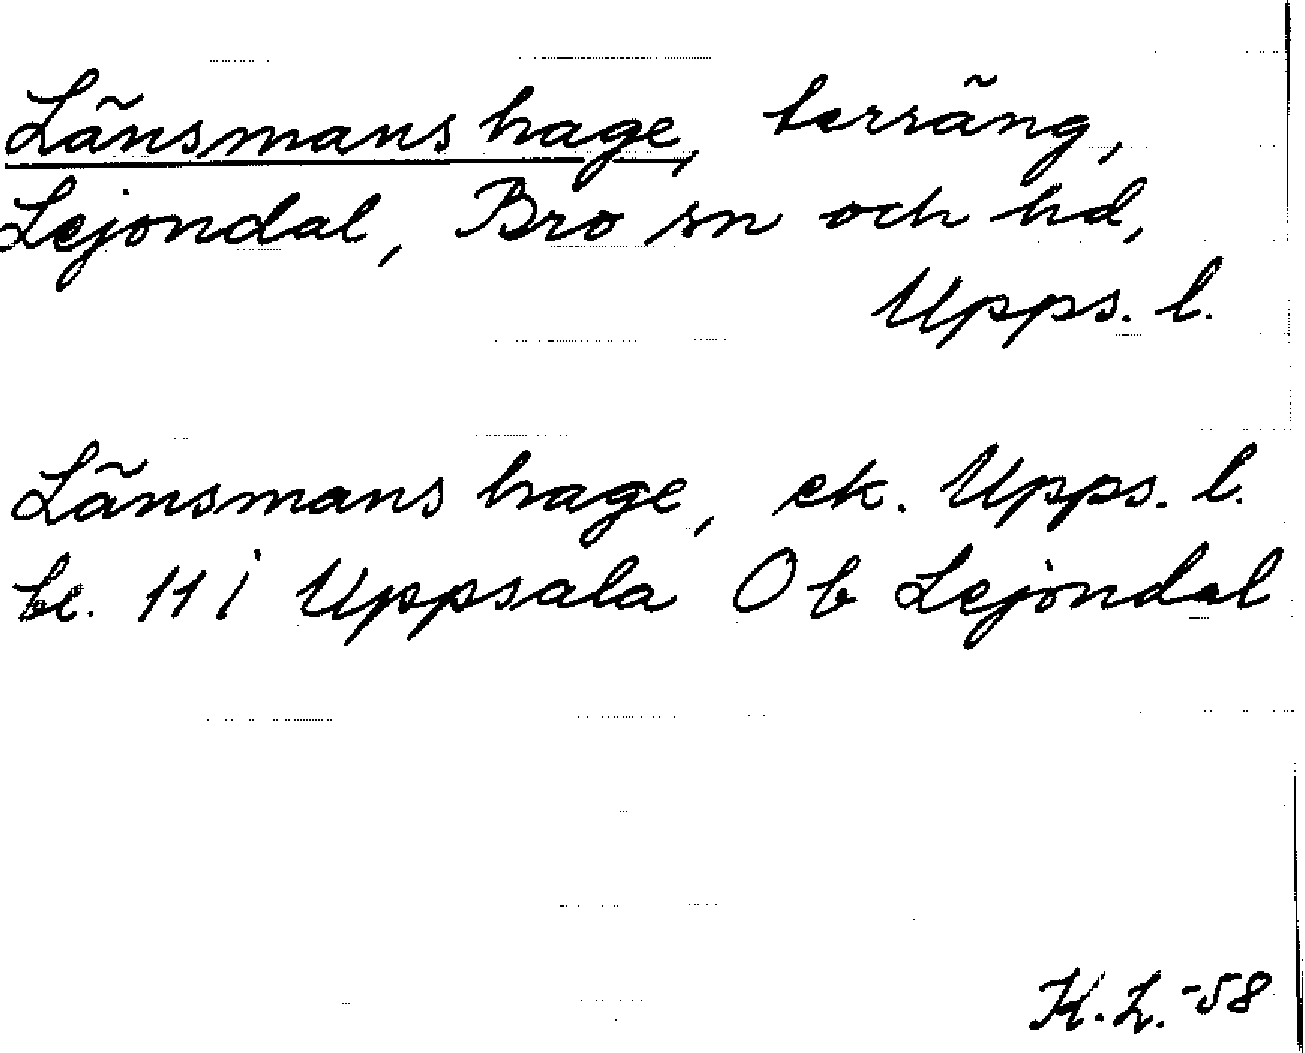 Länsmans hage, terräng,
Lejondal, Bro sn och hd,
Upps. l.
Länsmans hage, ek. Upps. l.
be. 11 i Uppsala O b Lejondal
K.L.-58